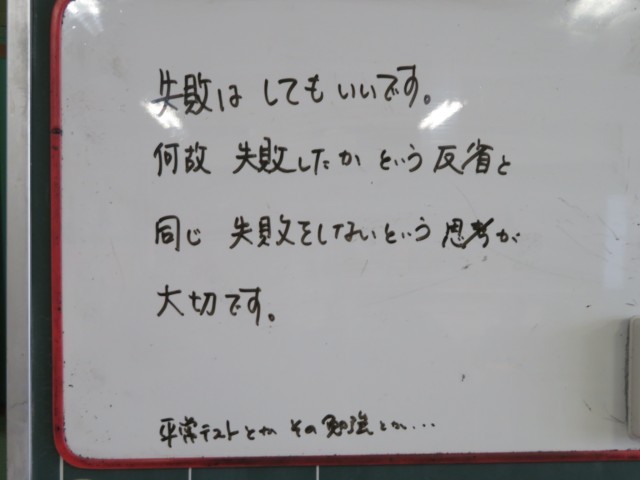 失敗は してもいいです。
何故 失敗したか という 反省と
同じ 失敗をしないという 思考が
大切です。
平常テストとか その 勉強とか…